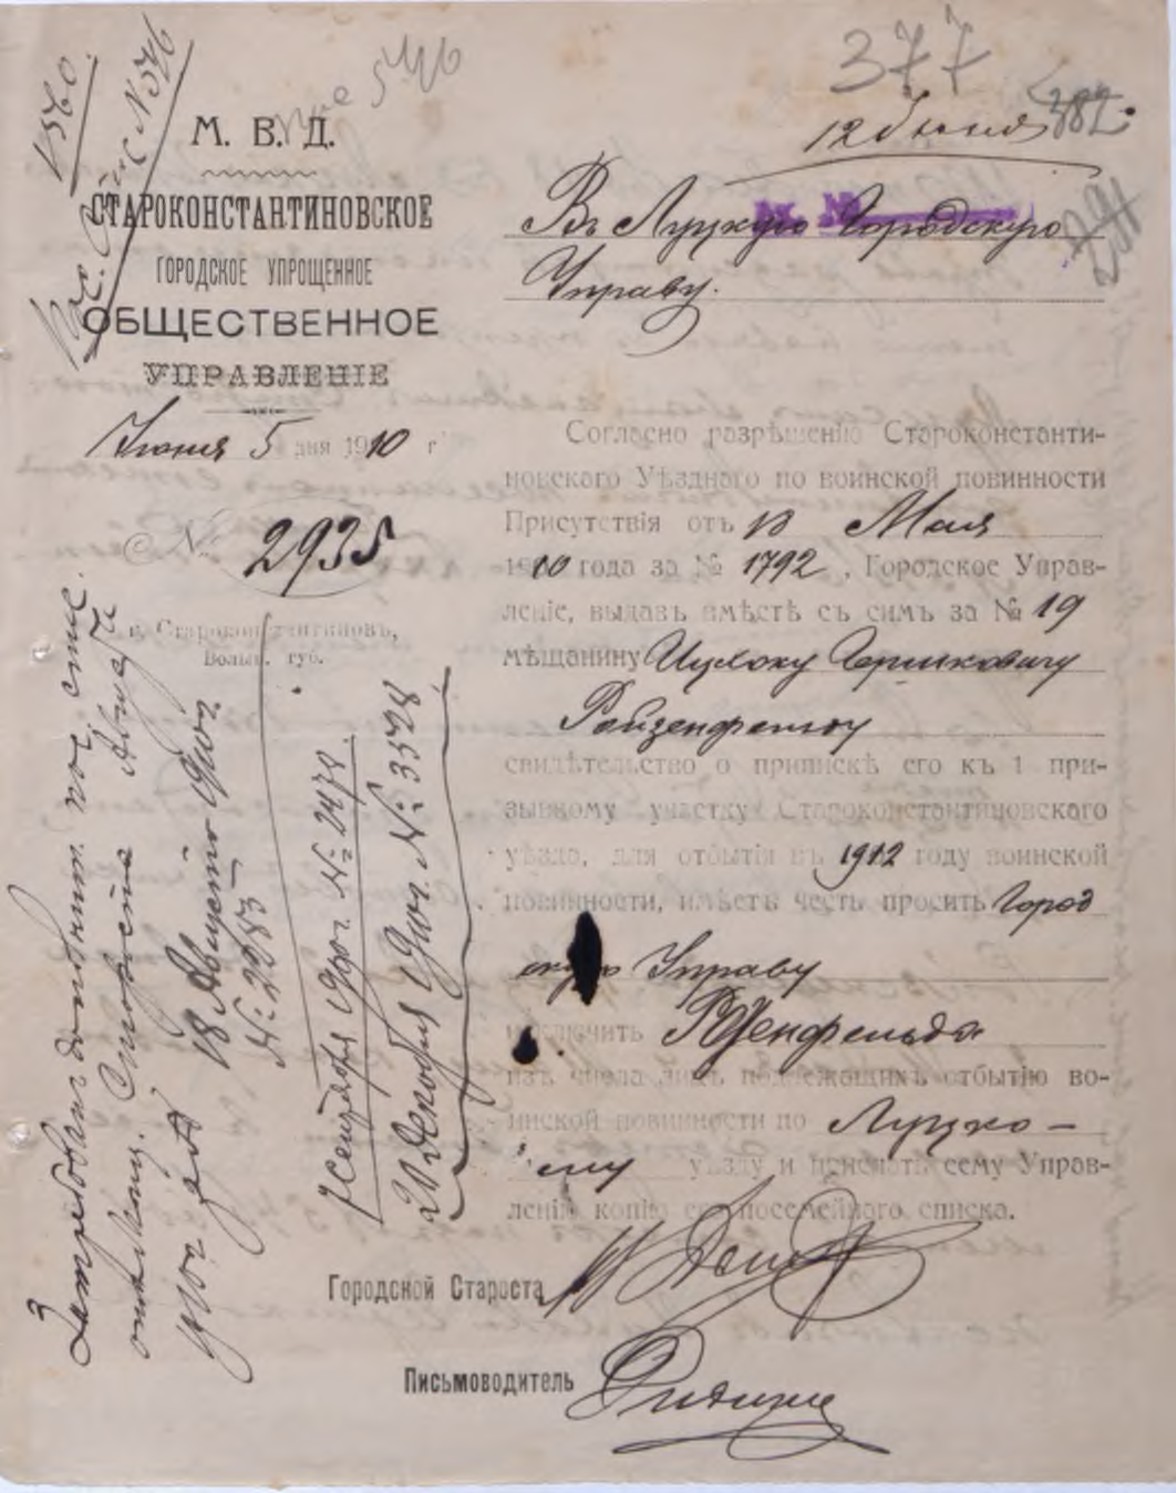 377
12 Июня
382
291
№ 560.
№ 546
М. В. Д.
СТАРОКОНСТАНТИНОВСКОЕ
ГОРОДСКОЕ УПРОЩЕННОЕ
ОБЩЕСТВЕННОЕ
УПРАВЛЕНІЕ
Июня 5 дня 1910 г.
№ 2935
г. Староконстантиновъ,
Волын. губ.
Въ Луцкую Городскую
Управу.
Согласно разрѣшенію Староконстанти-
новскаго Уѣзднаго по воинской повинности
Присутствія отъ Мая
1910 года за № 1792, Городское Управ-
леніе, выдавъ вмѣстѣ съ симъ за № 19
мѣщанину Ицхоку Гершковичу
Райзенфельду
свидѣтельство о припискѣ его къ 1 при-
зывному участку Староконстантиновскаго
уѣзда, для отбытія въ 1912 году воинской
повинности, имѣетъ честь просить Город
скую Управу
исключить Райзенфельда
изъ числа лицъ подлежащихъ отбытію во-
инской повинности по Луцко-
му уѣзду и прислать сему Управ-
ленію копію его посемейнаго списка.
Городской Староста
Письмоводитель
18 Августа 1910 г.
№ 2253
7 Сентября 1910 г. № 2478.
20 Декабря 1910 г. № 3528